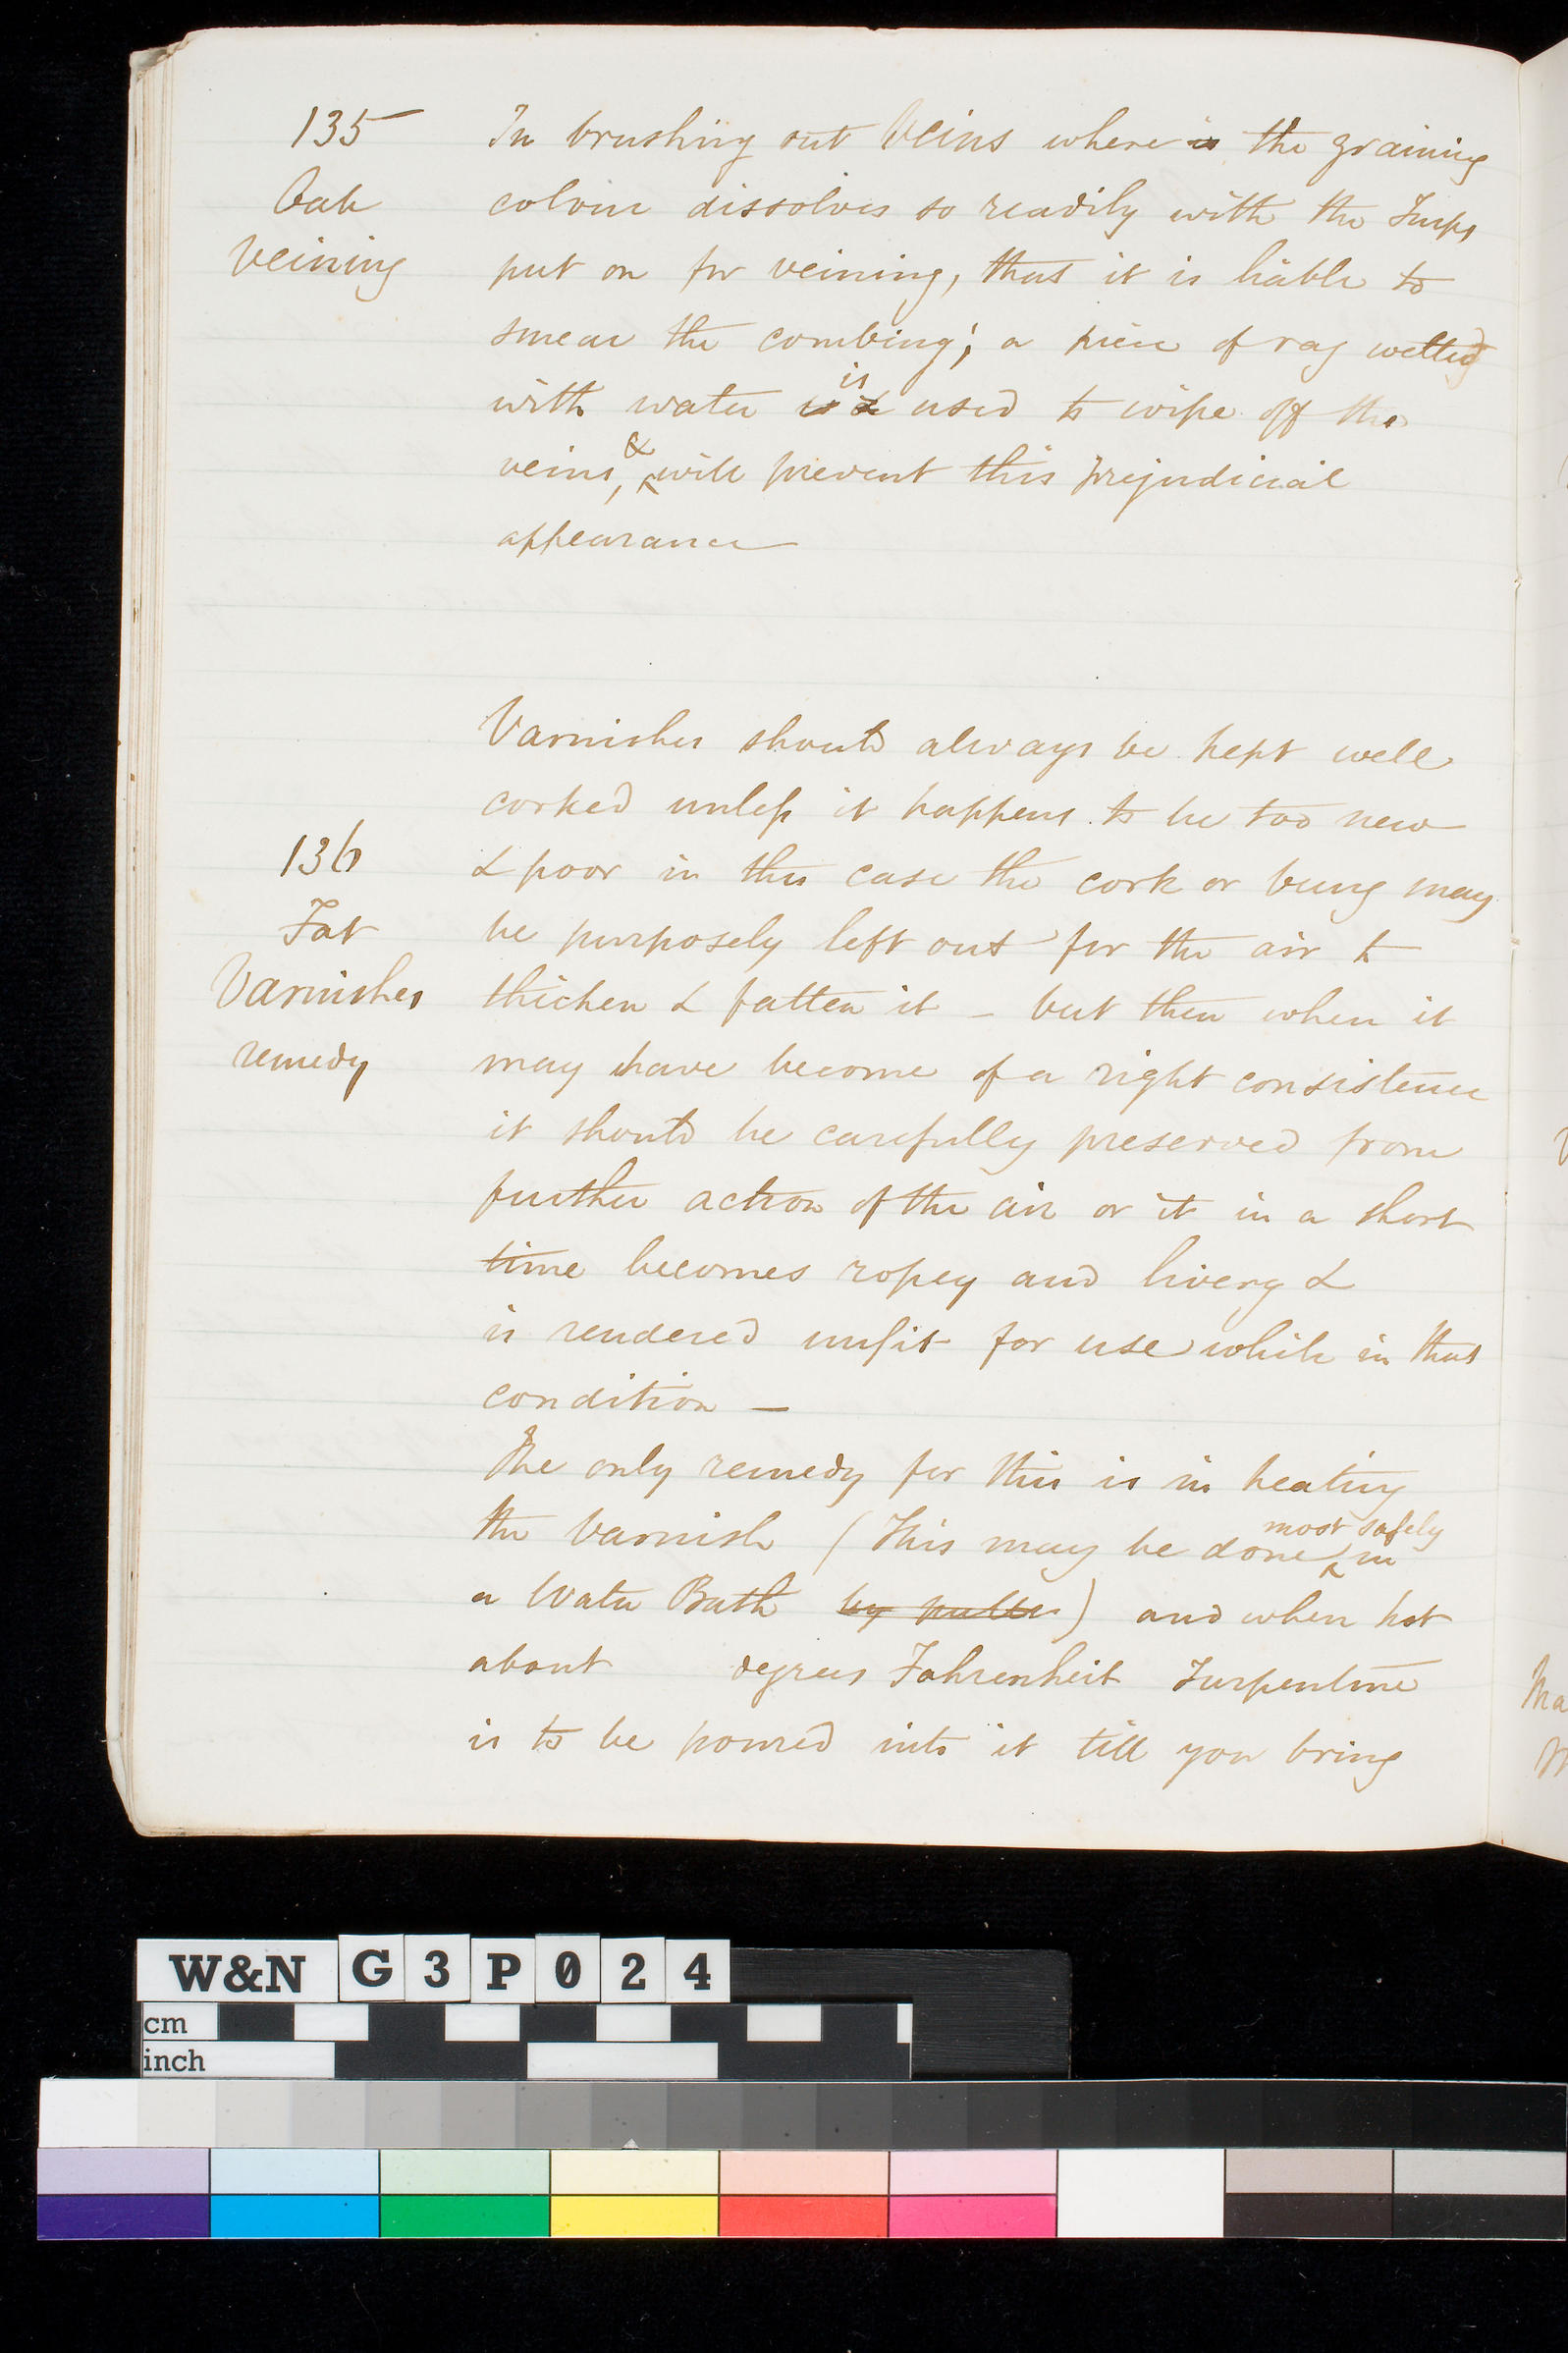 135
Oak
Veining
In brushing out Veins where is the graining
colour dissolves so readily with the Turps
put on for veining, that it is liable to
smear the combing; a piece of rag wetted
with water is & is used to wipe off the
veins, & will prevent this prejudicial
appearance
136
Fat
Varnishes
remedy
Varnishes should always be kept well
corked unless it happens to be too new
& poor in this case the cork or bung may
be purposely left out for the air to
thicken & fatten it – but then when it
may have become of a right consistence
it should be carefully preserved from
further action of the air or it in a short
time becomes ropey and livery &
is rendered unfit for use while in that
condition –
The only remedy for this is in heating
the Varnish (This may be done most safely in
a Water Bath by ) and when hot
about degrees Fahrenheit Turpentine
is to be poured into it till you bring
Ma
W&N G3P024
cm
inch